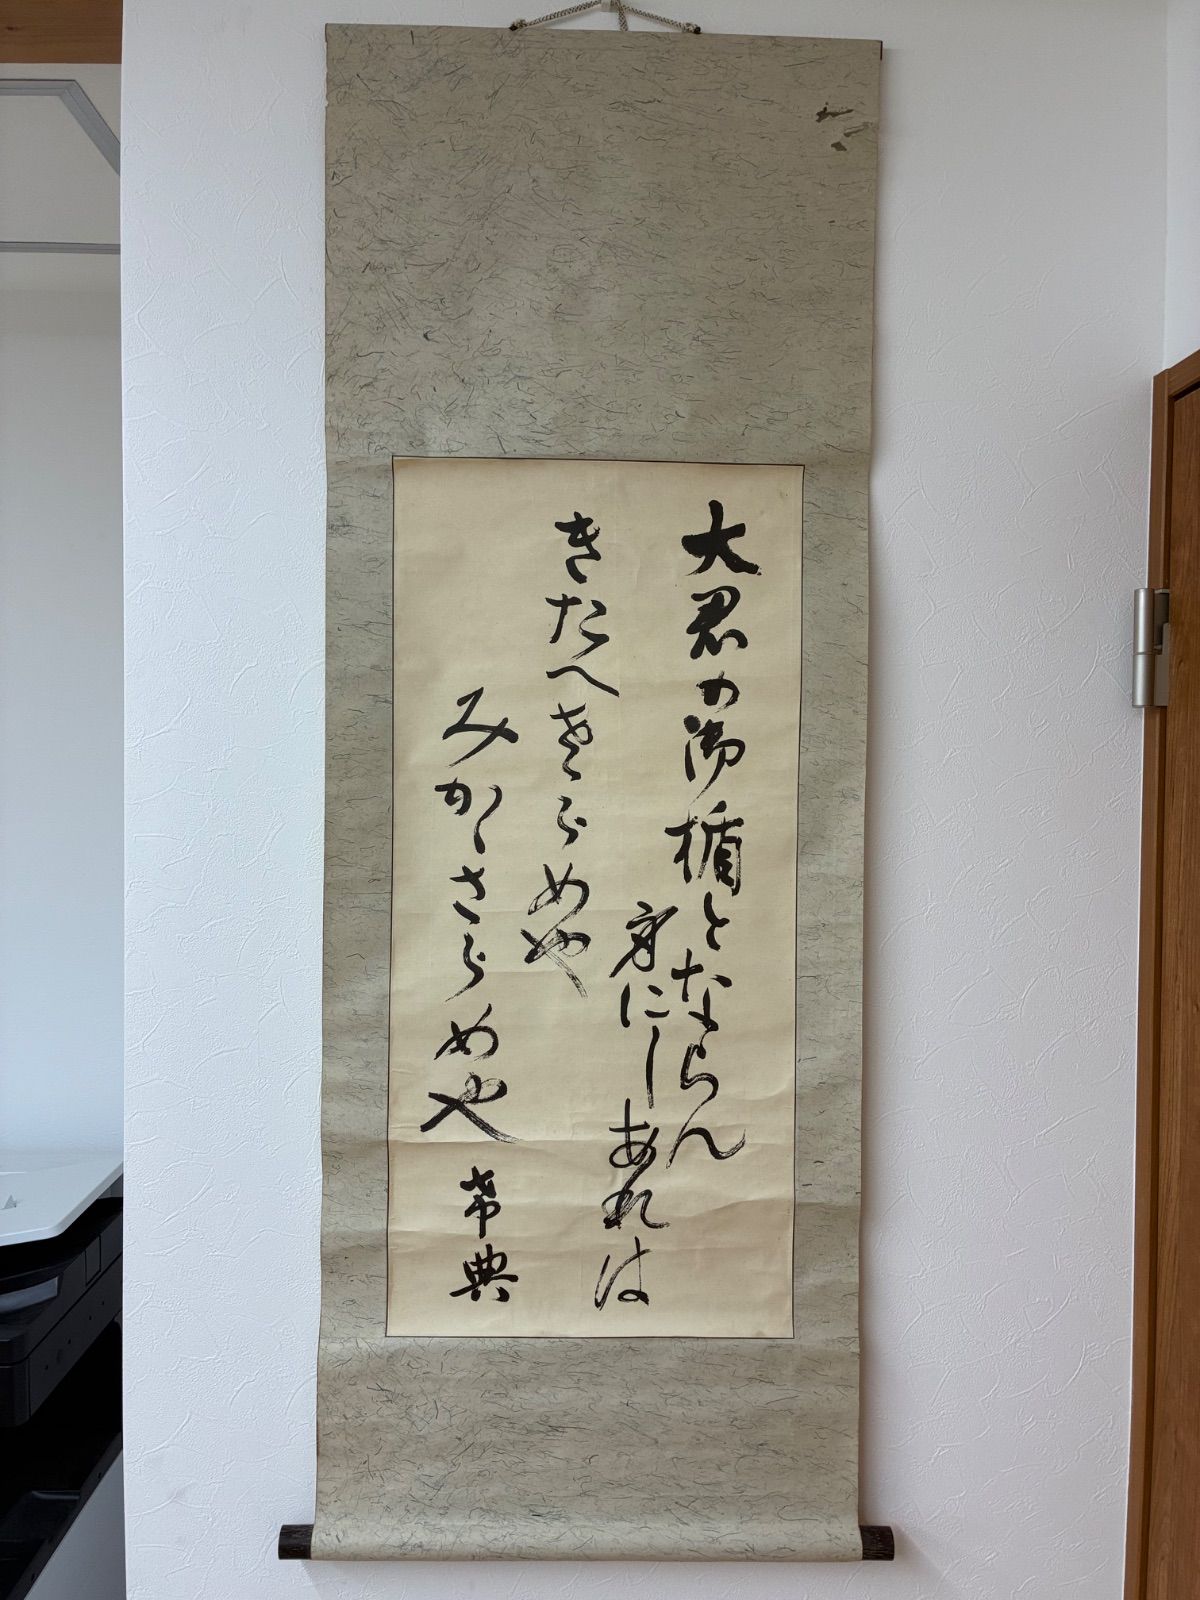 大君の御楯とならん
身にしあれは
きたへさらめや
みかゝさらめや
常典